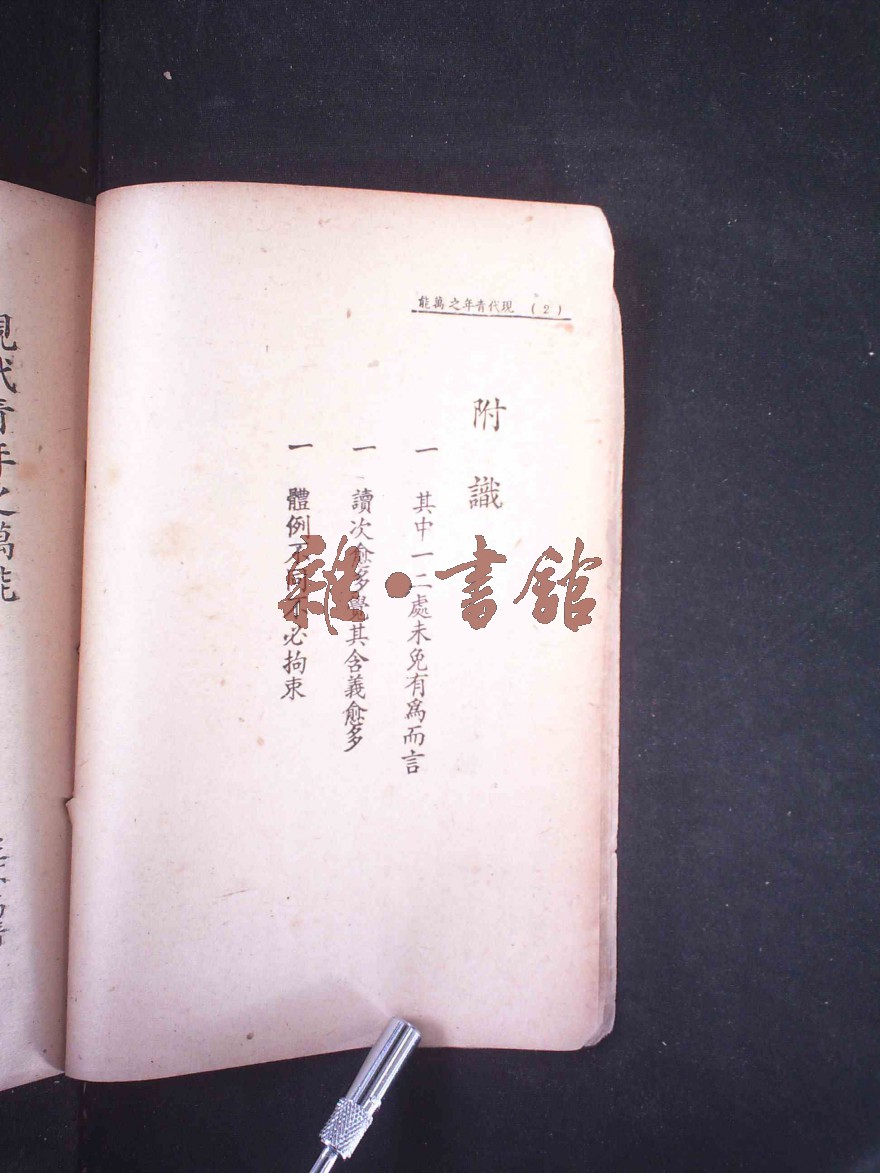 現代青年之萬能 (2)
附識
一 其中一二處未免有爲而言
一 讀次愈多覺其含義愈多
一 體例不同不必拘束
雜·書館
現代青年之萬能